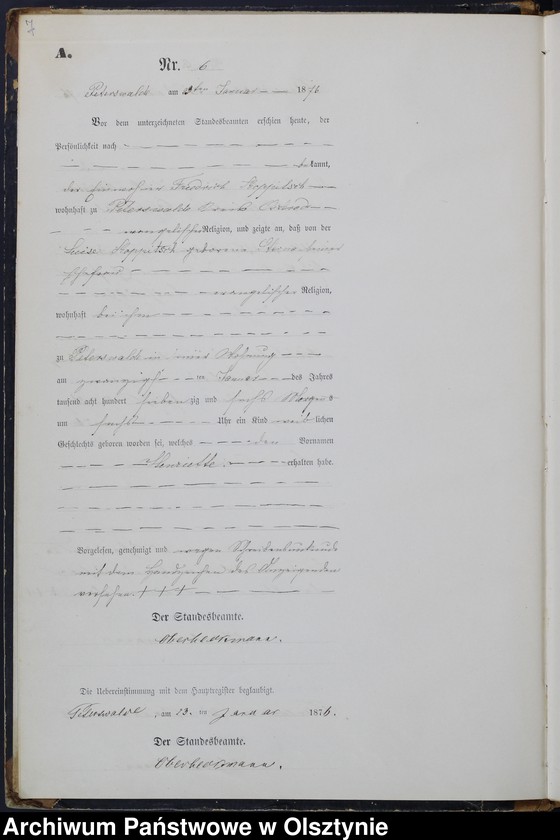 A.
Nr. 6
Peterswalde am Januar 1876
Vor dem unterzeichneten Standesbeamten erschien heute, der
Persönlichkeit nach
bekannt,
der Einwohner Friedrich
wohnhaft zu Peterswalde Kreis Osterode
evangelischer Religion, und zeigte an, daß von der
Luise geborene seiner
Ehefrau
evangelischer Religion,
wohnhaft bei ihm
zu Peterswalde in seiner Wohnung
am ten Januar des Jahres
tausend acht hundert siebenzig und sechs Morgens
um Uhr ein Kind weiblichen
Geschlechts geboren worden sei, welches den Vornamen
Henriette erhalten habe.
Vorgelesen, genehmigt und wegen Schreibensunkunde
mit dem Handzeichen des Anzeigenden
versehen. +++
Der Standesbeamte.
Oberheckmann.
Die Uebereinstimmung mit dem Hauptregister beglaubigt.
Peterswalde, am 23. ten Januar 1876.
Der Standesbeamte.
Oberheckmann.
Archiwum Państwowe w Olsztynie